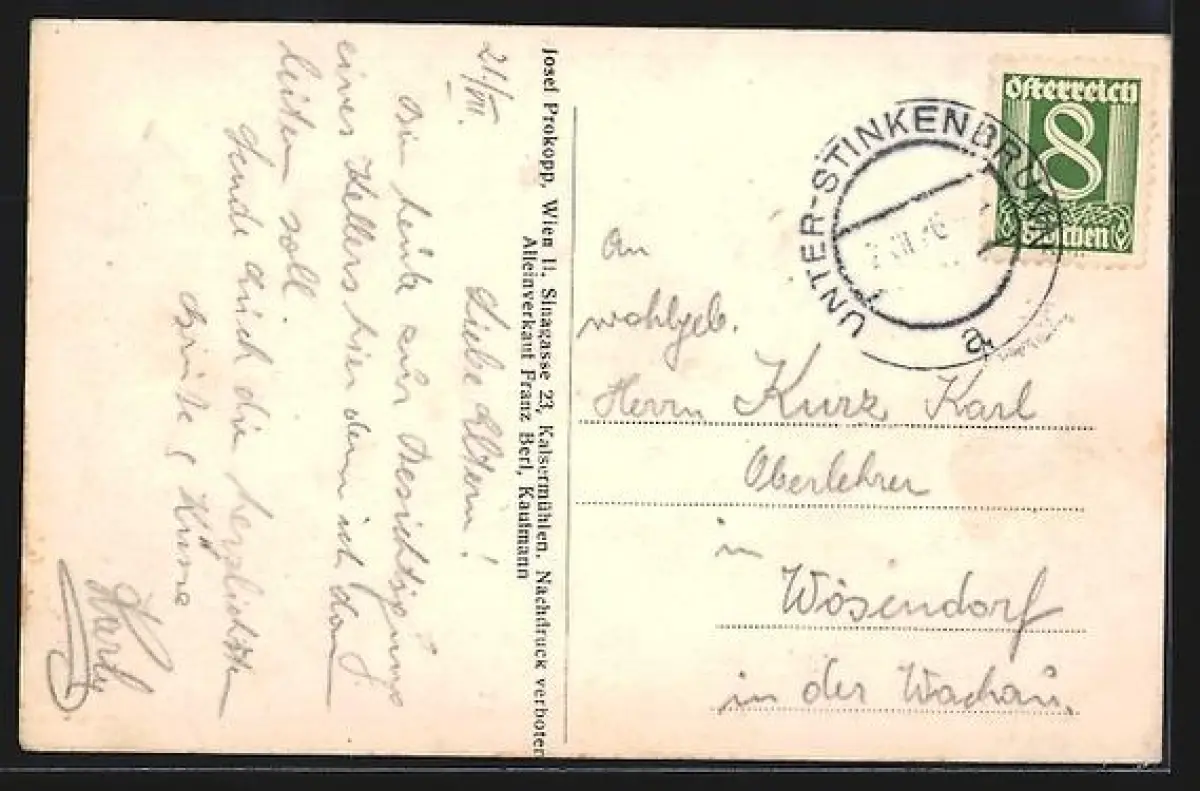 21./VII.
Liebe Eltern!
Bin heute zur Besichtigung
eines Kellers hier den ich dann
leiten soll.
Sende euch die herzlichsten
Grüße & Küsse
Josef Prokopp, Wien II, Sinagasse 23, Kaisermühlen. Nachdruck verboten
Alleinverkauf Franz Berl, Kaufmann
Österreich
8
Groschen
UNTER-STINKENBRUNN
a
An
wohlgeb.
Herrn Kurz Karl
Oberlehrer
in
Wösendorf
in der Wachau.